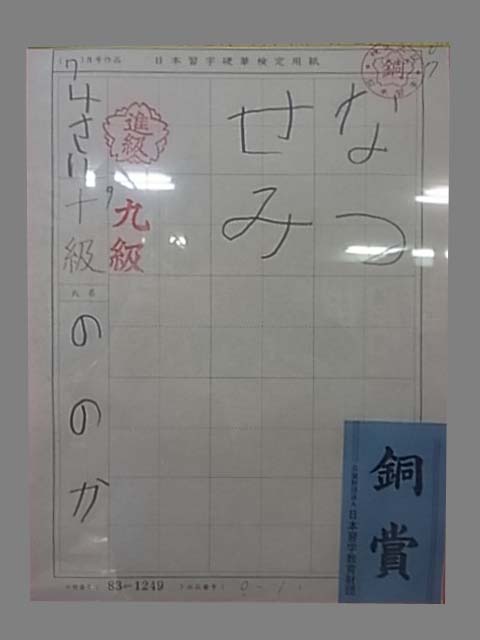 (7)月号作品 日本習字硬筆検定用紙
銅
なつ
せみ
進級
九級
4さい 十級
氏名
ののか
83-1249
銅賞
公益財団法人 日本習字教育財団